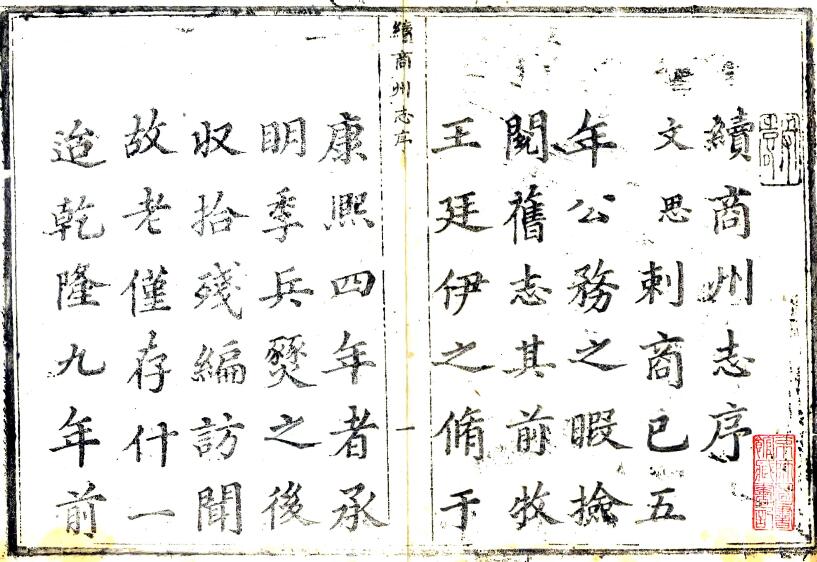 續商州志序
文思刺商已五
年公務之暇撿
閱舊志其前牧
王廷伊之脩于
續商州志序
一
康熙四年者承
明季兵燹之後
収拾殘編訪聞
故老僅存什一
迨乾隆九年前